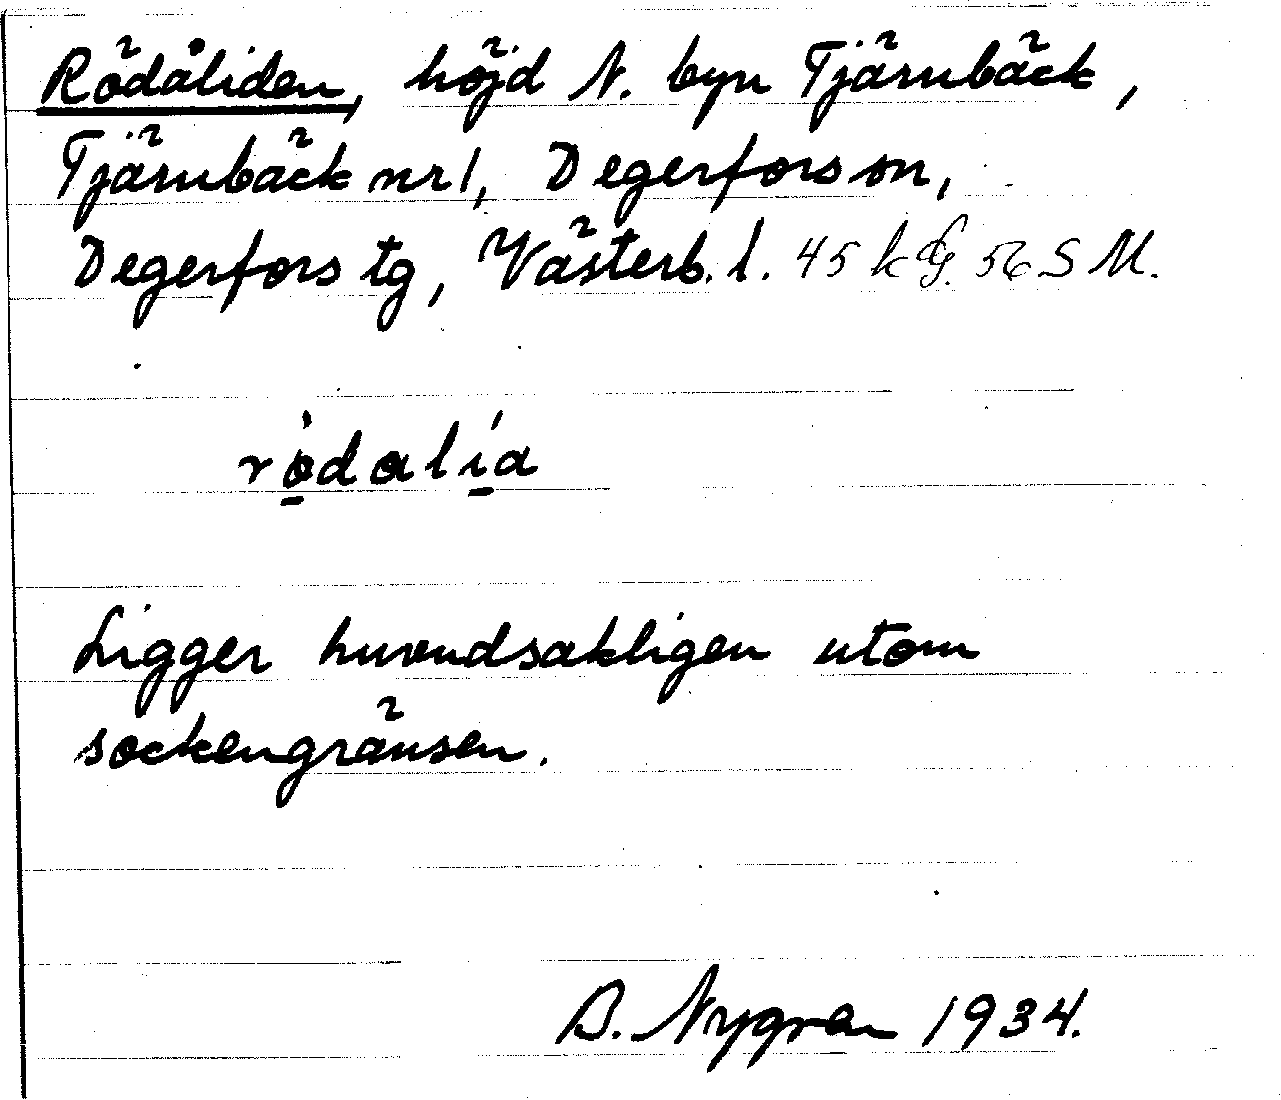 Rödåliden, höjd N. byn Tjärnbäck,
Tjärnbäck nr 1, Degerfors sn,
Degerfors tg, Västerb. l. 45 k G. 56 S M.
rö̱dali̱a
Ligger huvudsakligen utom
sockengränsen.
B. Nygren 1934.